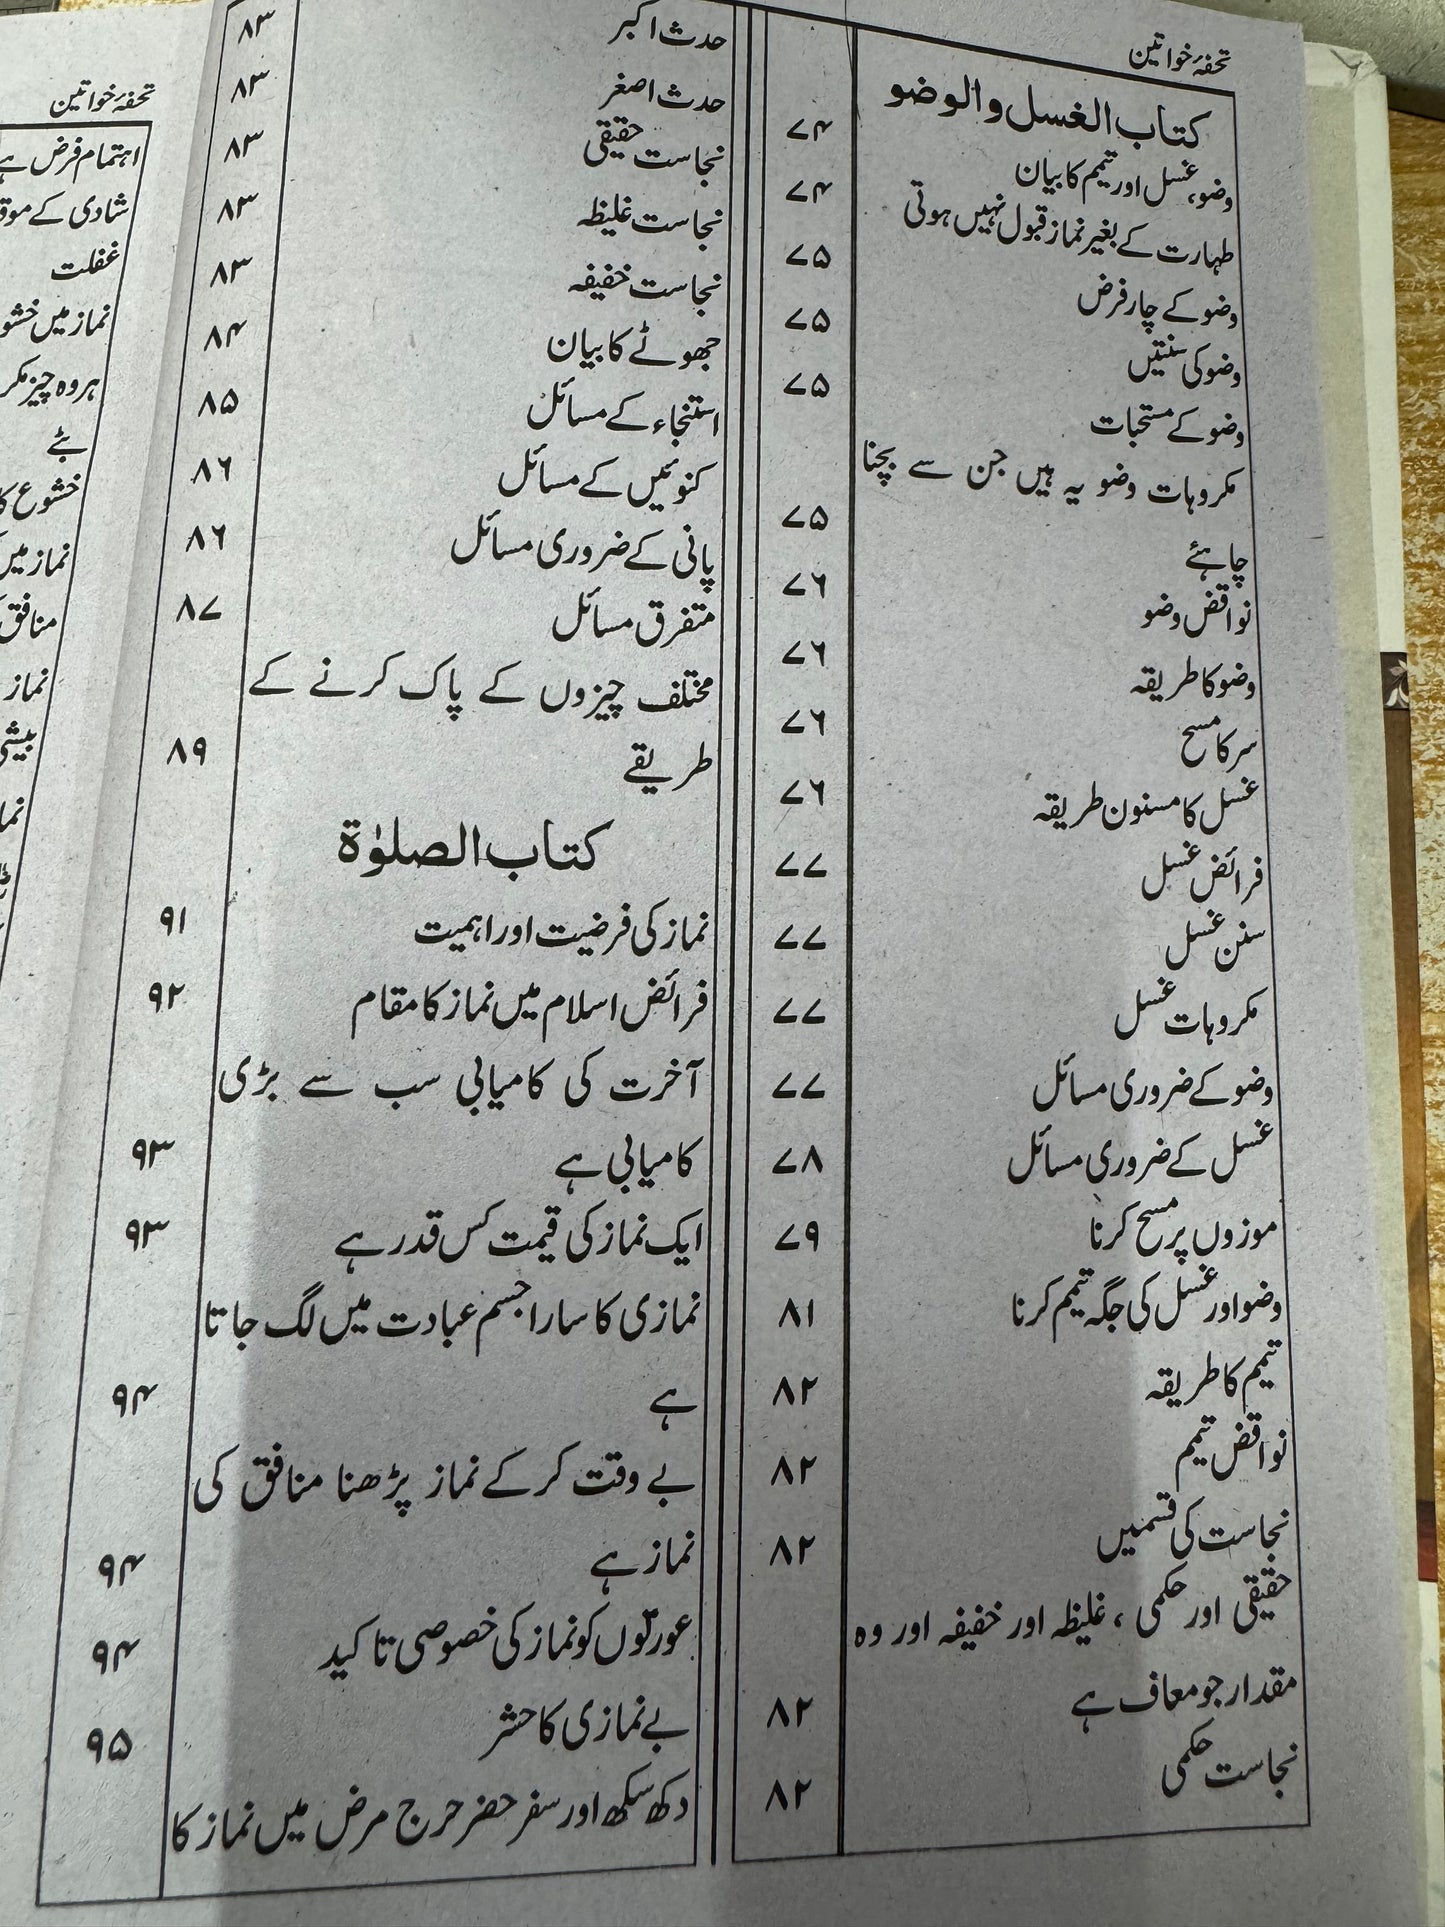 تحفۂ خواتین
کتاب الغسل والوضو
وضو، غسل اور تیمم کا بیان ۷۴
طہارت کے بغیر نماز قبول نہیں ہوتی ۷۴
وضو کے چار فرض ۷۵
وضو کی سنتیں ۷۵
وضو کے مستحبات ۷۵
مکروہات وضو یہ ہیں جن سے بچنا
چاہئے ۷۵
نواقض وضو ۷۶
وضو کا طریقہ ۷۶
سر کا مسح ۷۶
غسل کا مسنون طریقہ ۷۶
فرائض غسل ۷۷
سنن غسل ۷۷
مکروہات غسل ۷۷
وضو کے ضروری مسائل ۷۷
غسل کے ضروری مسائل ۷۸
موزوں پر مسح کرنا ۷۹
وضو اور غسل کی جگہ تیمم کرنا ۸۱
تیمم کا طریقہ ۸۲
نواقض تیمم ۸۲
نجاست کی قسمیں ۸۲
حقیقی اور حکمی ، غلیظہ اور خفیفہ اور وہ
مقدار جو معاف ہے ۸۲
نجاست حکمی ۸۲
حدث اکبر ۸۳
حدث اصغر ۸۳
نجاست حقیقی ۸۳
نجاست غلیظہ ۸۳
نجاست خفیفہ ۸۳
جھوٹے کا بیان ۸۴
استنجاء کے مسائل ۸۵
کنوئیں کے مسائل ۸۶
پانی کے ضروری مسائل ۸۶
متفرق مسائل ۸۷
مختلف چیزوں کے پاک کرنے کے
طریقے ۸۹
کتاب الصلوٰۃ
نماز کی فرضیت اور اہمیت ۹۱
فرائض اسلام میں نماز کا مقام ۹۲
آخرت کی کامیابی سب سے بڑی
کامیابی ہے ۹۳
ایک نماز کی قیمت کس قدر ہے ۹۳
نمازی کا سارا جسم عبادت میں لگ جاتا
ہے ۹۴
بے وقت کر کے نماز پڑھنا منافق کی
نماز ہے ۹۴
عورتوں کو نماز کی خصوصی تاکید ۹۴
بے نمازی کا حشر ۹۵
دکھ سکھ اور سفر حضر حرج مرض میں نماز کا
تحفۂ خواتین
اہتمام فرض ہے
شادی کے
غفلت
نماز میں
ہر وہ چیز
ہٹے
خشوع
نماز میں
منافق
نماز